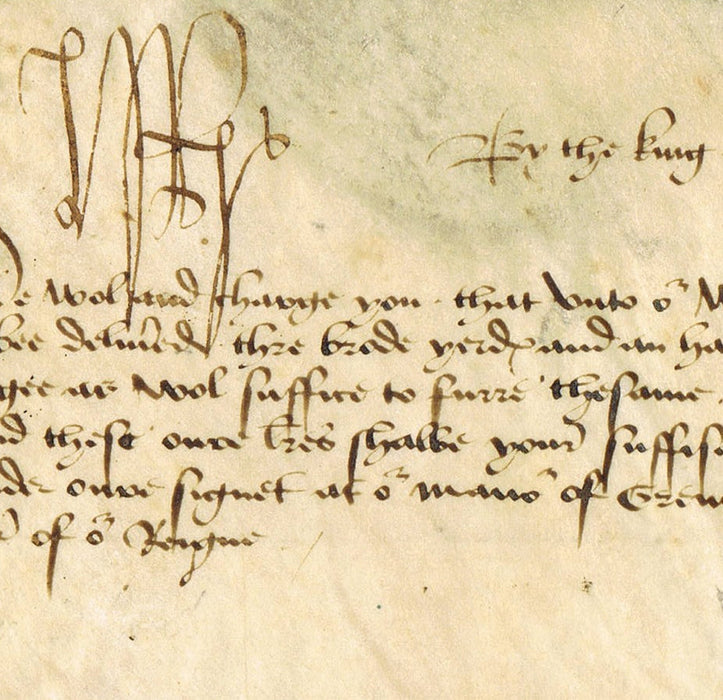 By the king
We wol and charge you that unto oʳ
bee deliũed thre brode yerdꝭ and an ha
gee as wol suffice to furre thesame
nd these oure lr̃es shalbe your suffis
nder oure signet at oʳ manoʳ of Gren
of oʳ Reigne